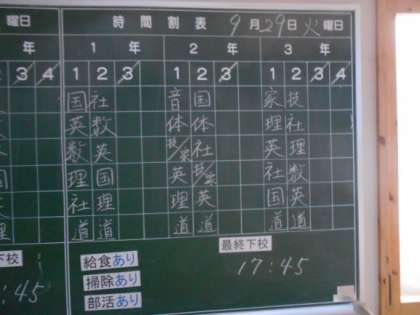 曜日 時間割表 9月29日火曜日
年 1年 2年 3年
3 4 1 2 3 1 2 3 1 2 3 4
国 社 音 国 家 技
英 数 体 体 理 社
数 英 技/家 社 英 理
理 国 英 技/家 社 数
社 理 理 英 国 英
理 道 道 道 道 道 道
下校 最終下校
:45 17:45
給食あり
掃除あり
部活あり